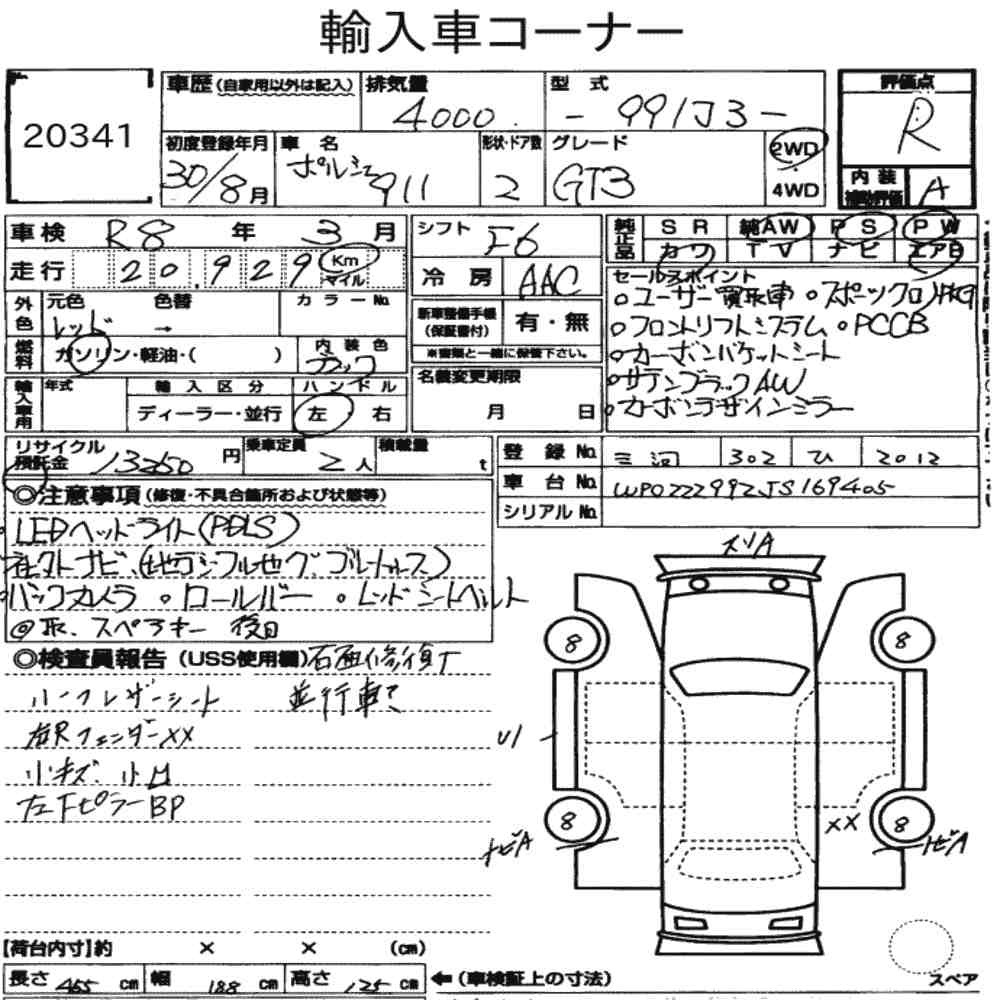 輸入車コーナー
20341
車歴 (自家用以外は記入)
排気量
4000
型式
- 991J3 -
評価点
R
初度登録年月
30/8月
車名
ポルシェ 911
形状・ドア数
2
グレード
GT3
2WD
4WD
内装
補助評価
A
車検 R8 年 3 月
走行 20,929 Km マイル
シフト F6
冷房 AAC
純正品
SR 純AW PS PW
カワ TV ナビ エアB
外色
元色 レッド
色替 →
カラーNo.
燃料
ガソリン・軽油・( )
内装色 ブラック
新車整備手帳 (保証書付) 有・無
※書類と一緒に保管下さい。
セールスポイント
○ユーザー買取車 ○スポーツクロノPKG
○フロントリフトシステム ○PCCB
○カーボンバケットシート
○サテンブラックAW
○カーボンデザインミラー
輸入車用
年式
輸入区分
ディーラー・並行
ハンドル
左 右
名義変更期限
月 日
リサイクル預託金 13250 円
乗車定員 2人
積載量 t
登録No. 三河 302 ひ 2012
車台No. WP0ZZZ99ZJS169405
シリアルNo.
◎注意事項 (修復・不具合箇所および状態等)
LEDヘッドライト(PDLS)
バックカメラ ○ロールバー ○レッドシートベルト
◎取、スペアキー 後日
◎検査員報告 (USS使用欄)
ハーフレザーシート
並行車で
右Rフェンダーxx
小キズ、小凹
左Fピラー BP
スリA
8
8
U1
8
8
xx
トビA
トビA
【荷台内寸】約 × × (cm)
長さ 455 cm 幅 188 cm 高さ 125 cm
← (車検証上の寸法)
スペア